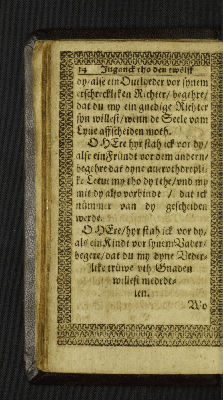 14 Inganck tho den twölff
dy/ alse ein Oueltheder vor synem
erschreckliken Richter/ begehre/
dat du my ein gnedige Richter
syn willest/ wenn de Seele vam
Lyue affscheiden moth.
O HEre hyr stah ick vor dy/
alse ein Fründt vor dem andern/
begehre dat dyne auerothdrepli-
ke Leeue my tho dy tehe/ vnd my
mit dy also vorbinde / dat ick
nümmer van dy gescheiden
werde.
O HEre/ hyr stah ick vor dy/
als ein Kindt vor synem Vader/
begere/ dat du my dyne Veder-
like trüwe vth Gnaden
willest mededé-
len.
Wo